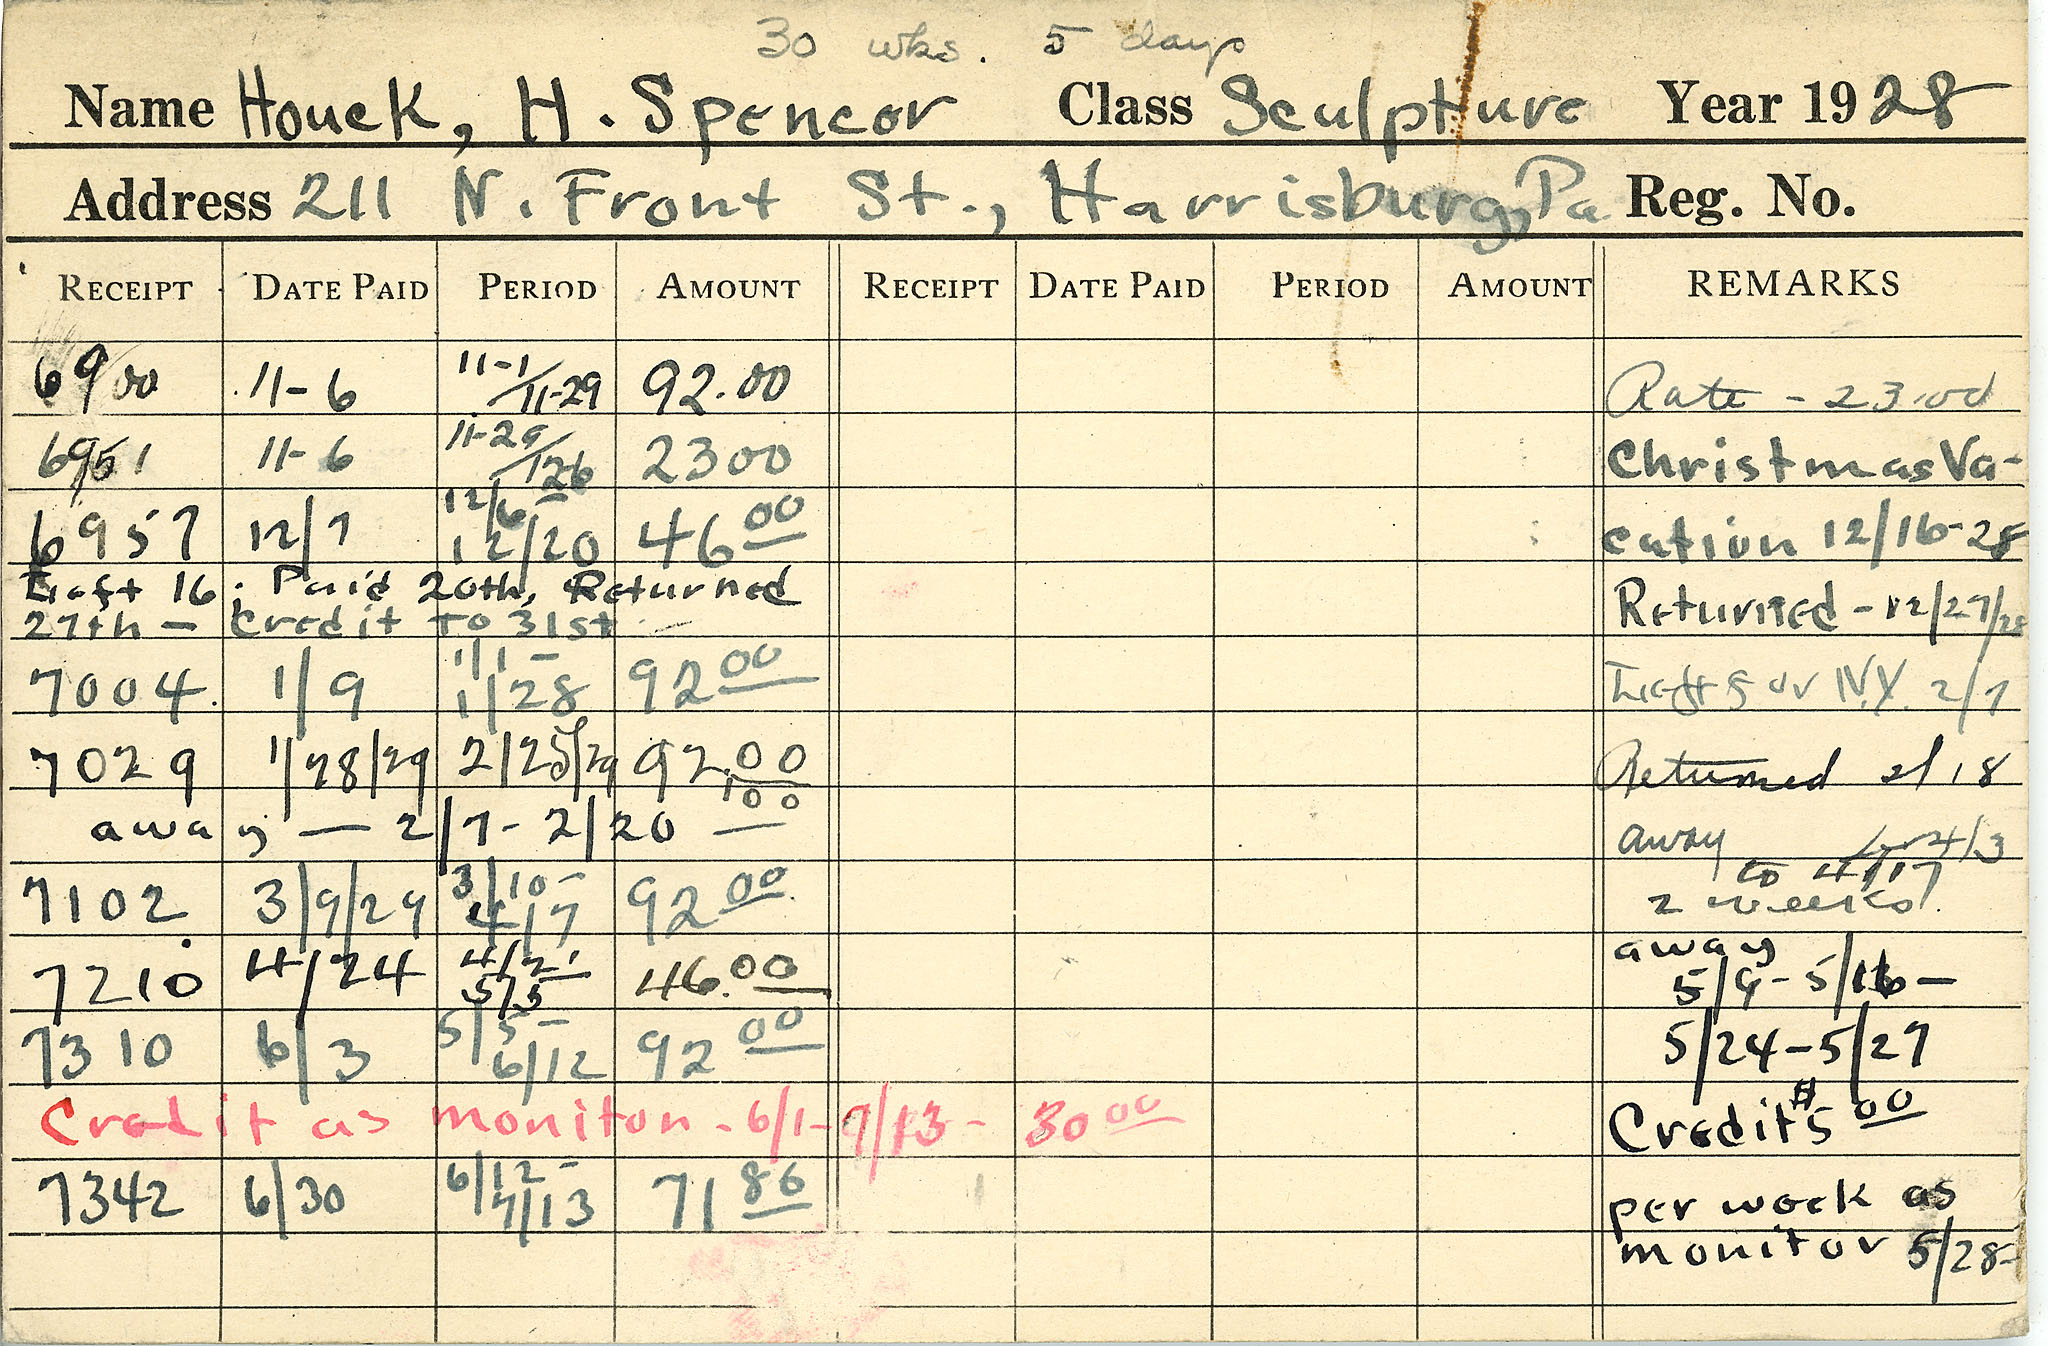 30 wks. 5 days
Name Houck, H. Spencer Class Sculpture Year 1928
Address 211 N. Front St., Harrisburg, Pa Reg. No.
RECEIPT DATE PAID PERIOD AMOUNT RECEIPT DATE PAID PERIOD AMOUNT REMARKS
6900 11-6 11-1/11-29 92.00 Rate - 23.00
6951 11-6 11-29/126 2300 Christmas Va-
6957 12/7 12/6- 12/20 46 00 cation 12/16-28
Left 16. Paid 20th, Returned
27th - Credit to 31st Returned - 12/27/28
7004. 1/9 1/1- 1/28 92 00 Left for N.Y. 2/7
7029 1/28/29 2/25/29 92.00 Returned 2/18
100
away — 2/7 - 2/20 — away 4/3
to 4/17
7102 3/9/29 3/10- 4/7 92 00 2 weeks.
away
7210 4/24 4/21 5/5 46.00 5/9 - 5/16 -
7310 6/3 5/5- 6/12 92 00 5/24-5/27
Credit as moniton - 6/1-7/13 - 30 00 Credit $5 00
7342 6/30 6/12- 7/13 71 86 per week as
monitor 5/28-